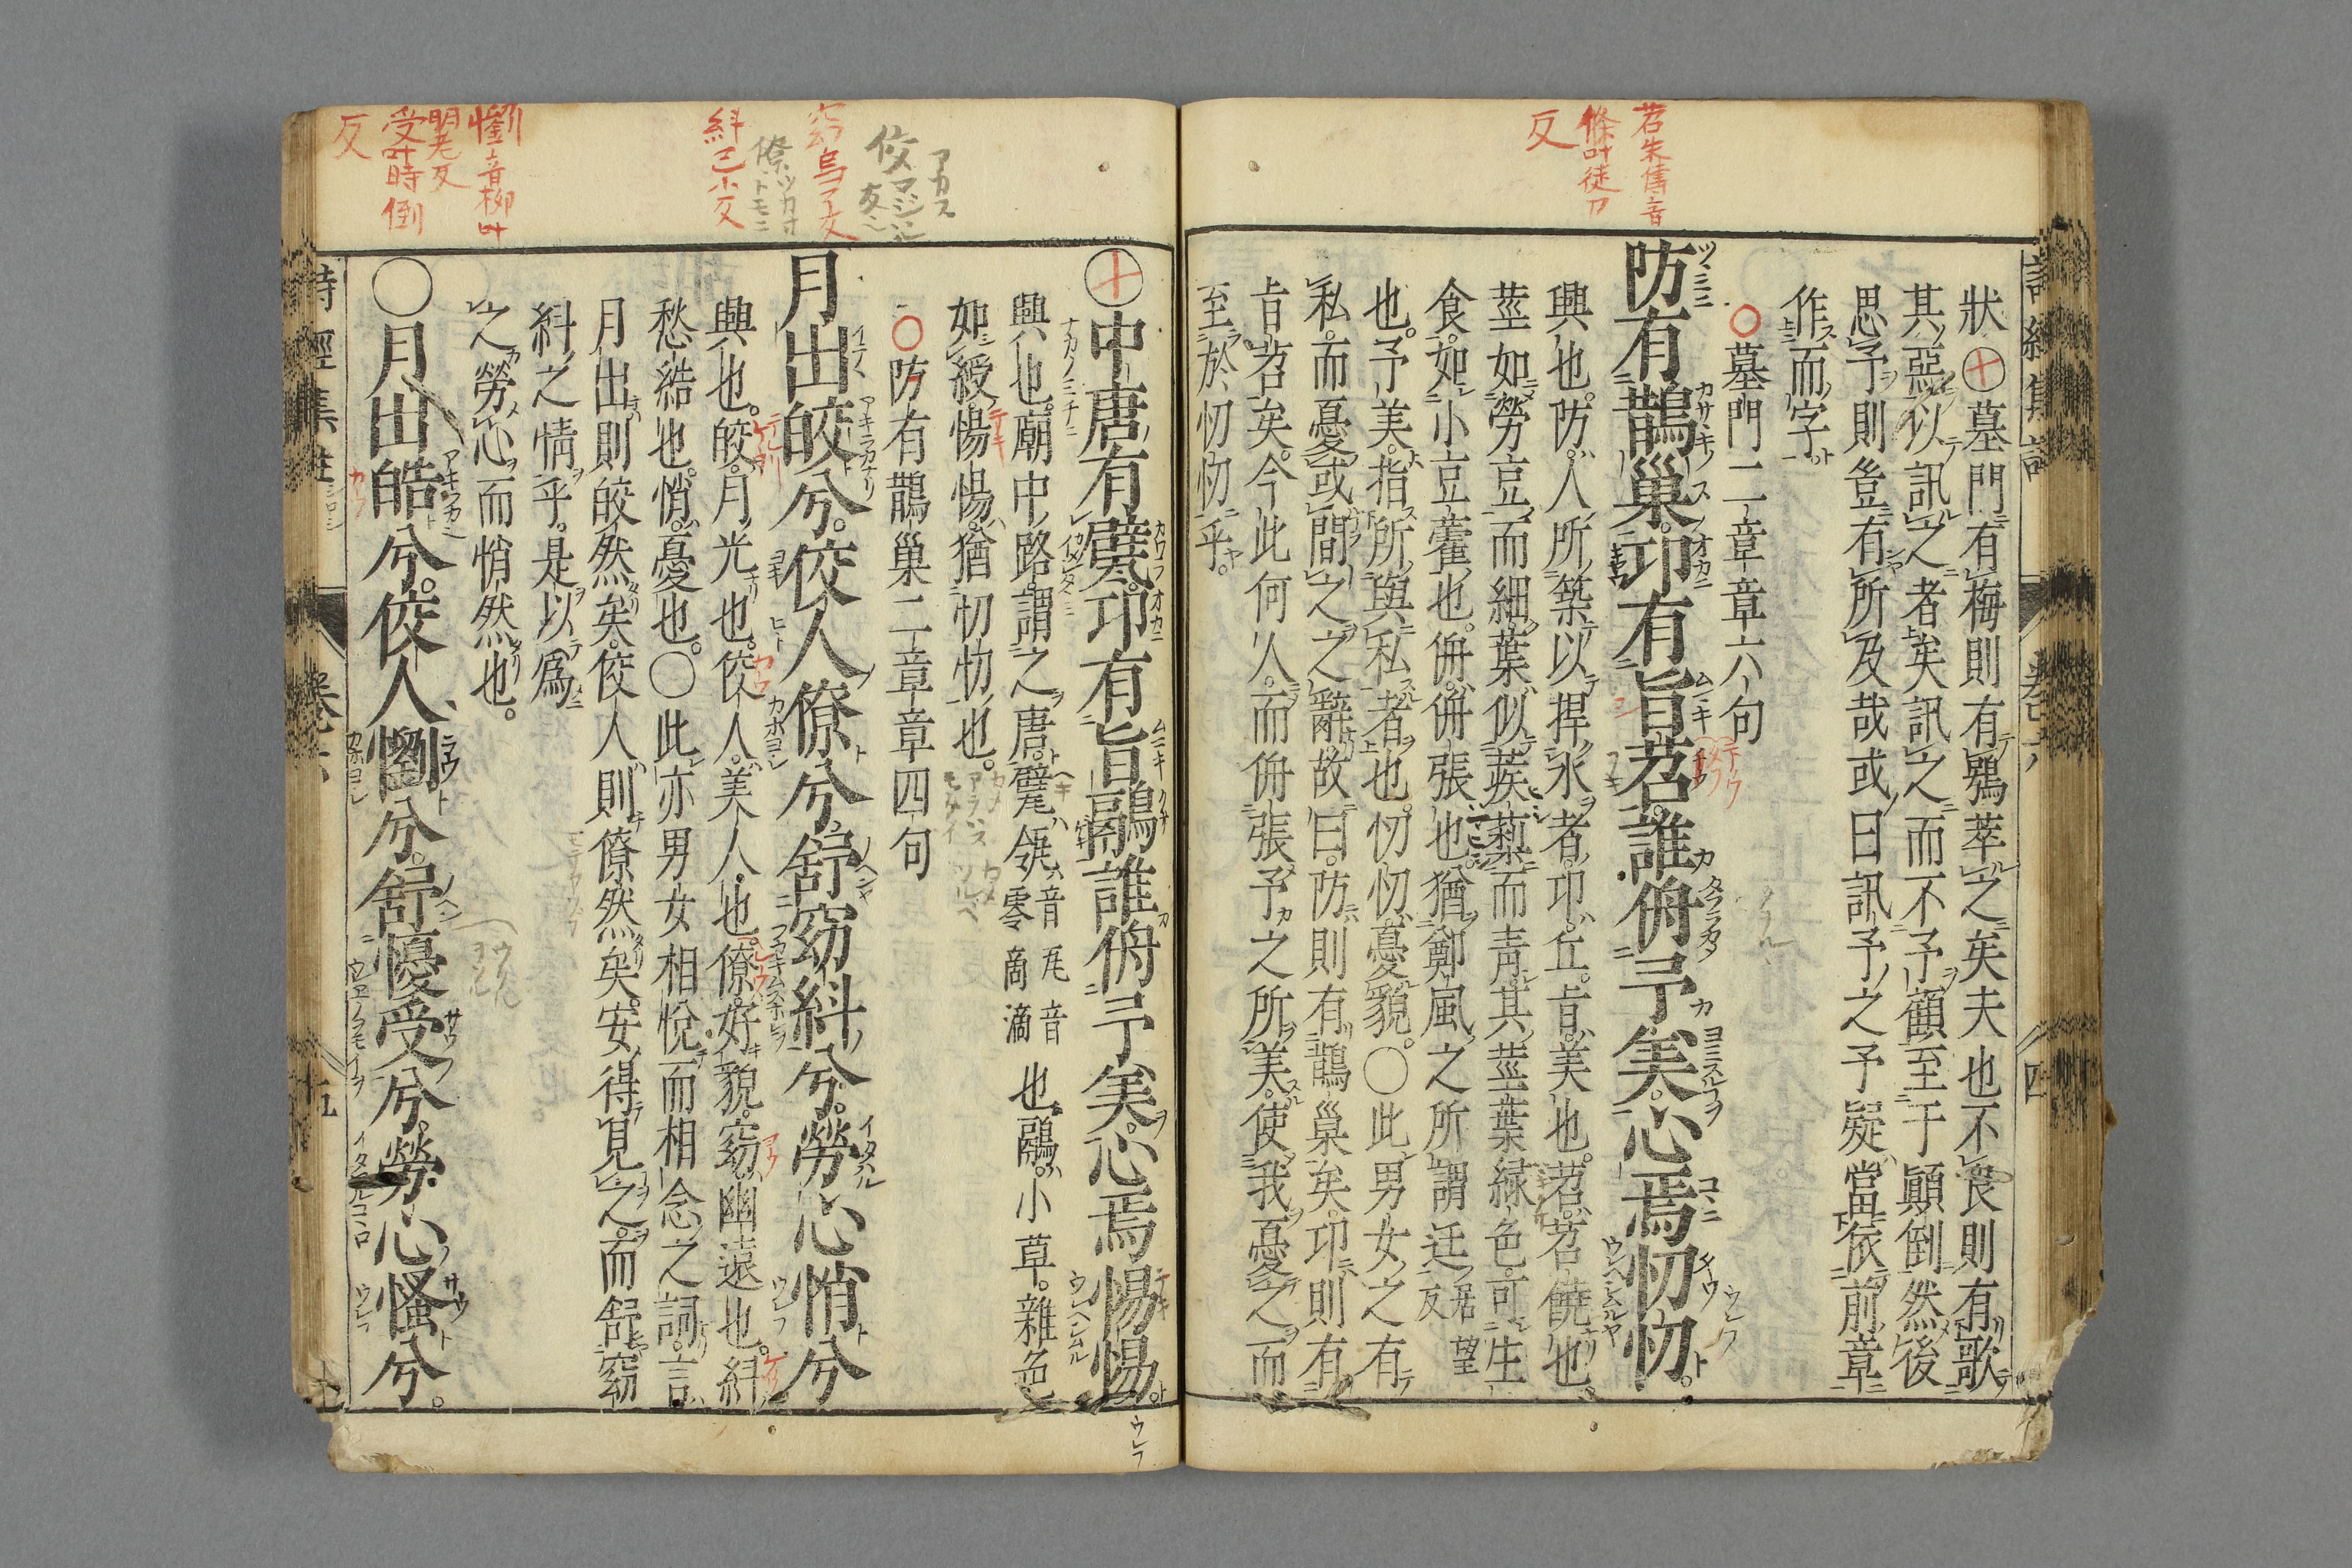 苕朱傳音
條叶徒刀
反
狀〇墓門有梅則有鴞萃之矣夫也不良則有歌
其惡以訊之者矣訊之而不予顧至于顚倒然後
思予則豈有所及哉或曰訊予之予疑當依前章
作而字
〇墓門二章章六句
防有鵲巢邛有旨苕誰侜予美心焉忉忉
興也防人所築以捍水者邛丘旨美也苕苕饒也
莖如勞豆而細葉似蒺藜而青其莖葉緑色可生
食如小豆藿也侜侜張也猶鄭風之所謂迋居望反
也予美指所與私者也忉忉憂貌〇此男女之有
私而憂或間之之辭故曰防則有鵲巢矣邛則有
旨苕矣今此何人而侜張予之所美使我憂之而
至於忉忉乎
詩經集註
卷六
四
アカス
佼マジハル
窈烏了反
僚ツカサトモ
糾己小反
懰音柳叶
朗老反
受叶時倒
反
〇中唐有甓邛有旨鷊誰侜予美心焉惕惕
興也廟中路謂之唐甓瓴音零甋音滴也鷊小草雜色
如綬惕惕猶忉忉也
〇防有鵲巢二章章四句
月出皎兮佼人僚兮舒窈糾兮勞心悄兮
興也皎月光也佼人美人也僚好貌窈幽遠也糾
愁結也悄憂也〇此亦男女相悅而相念之詞言
月出則皎然矣佼人則僚然矣安得見之而舒窈
糾之情乎是以爲
之勞心而悄然也
〇月出皓兮佼人懰兮舒懮受兮勞心慅兮
詩經集註
卷六
五